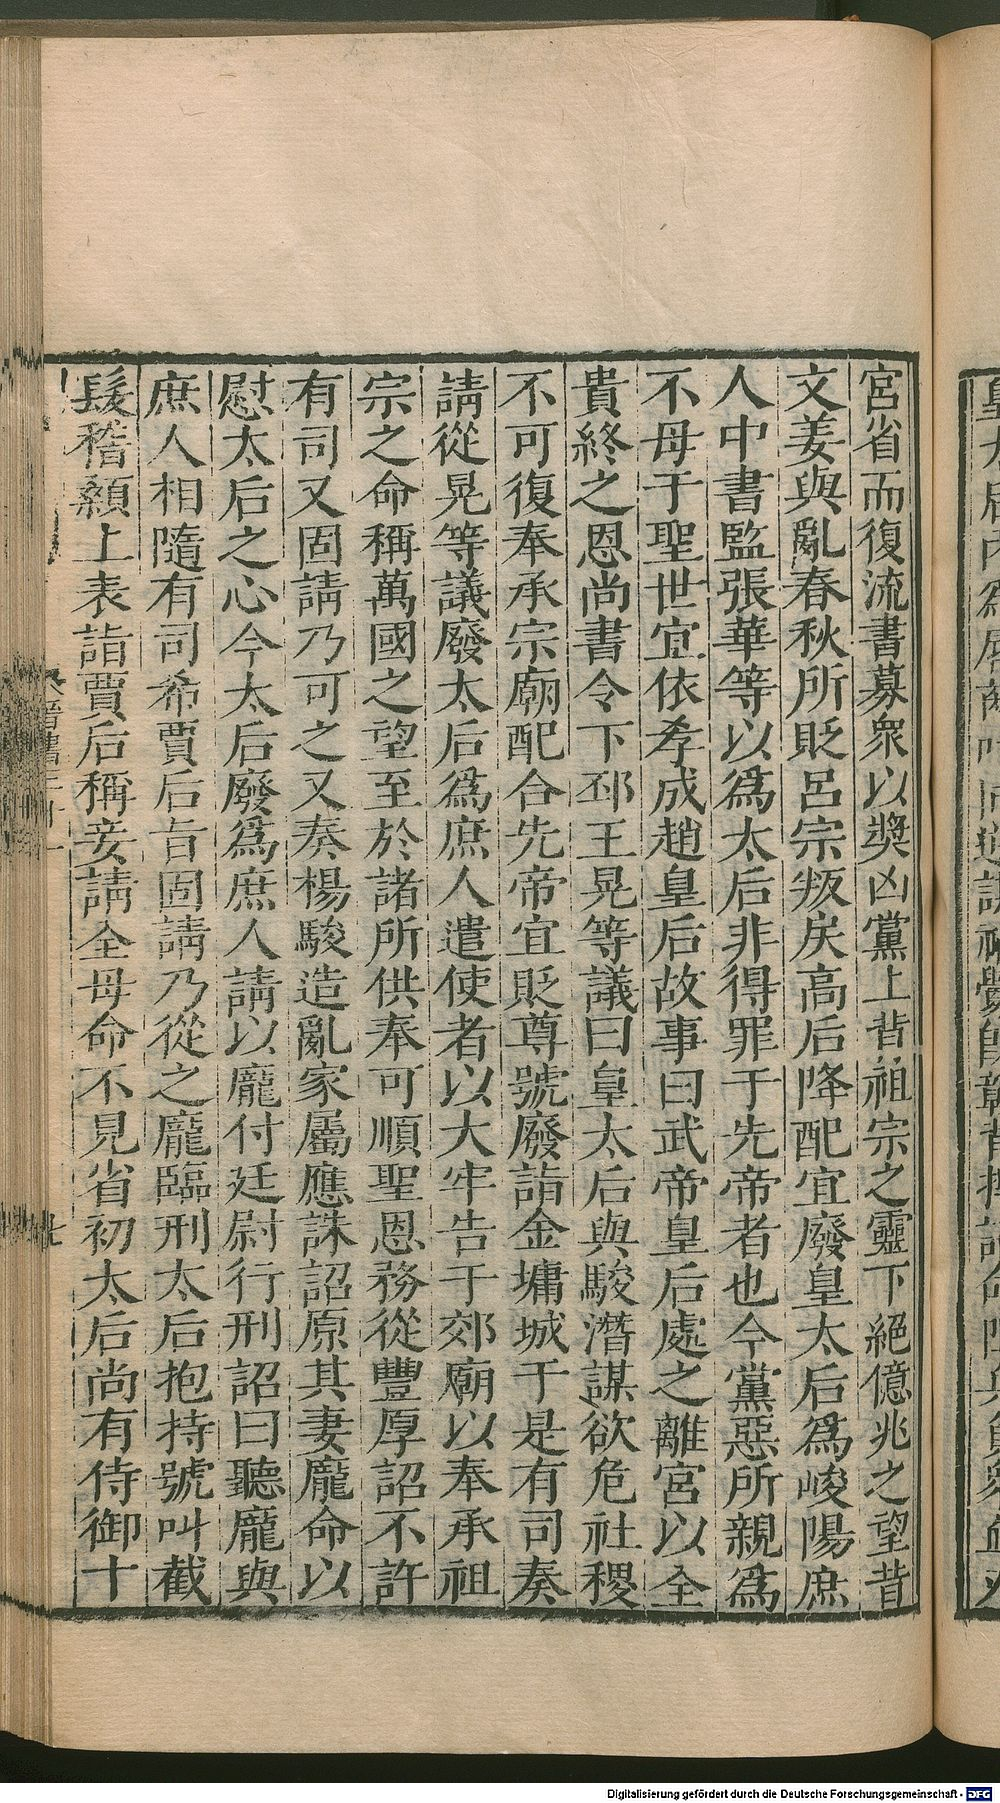 宮省而復流書募衆以奬凶黨上背祖宗之靈下絕億兆之望昔
文姜與亂春秋所貶呂宗叛戾高后降配宜廢皇太后爲峻陽庶
人中書監張華等以爲太后非得罪于先帝者也今黨惡所親爲
不母于聖世宜依孝成趙皇后故事曰武帝皇后處之離宮以全
貴終之恩尚書令下邳王晃等議曰皇太后與駿潛謀欲危社稷
不可復奉承宗廟配合先帝宜貶尊號廢詣金墉城于是有司奏
請從晃等議廢太后爲庶人遣使者以大牢告于郊廟以奉承祖
宗之命稱萬國之望至於諸所供奉可順聖恩務從豐厚詔不許
有司又固請乃可之又奏楊駿造亂家屬應誅詔原其妻龐命以
慰太后之心今太后廢爲庶人請以龐付廷尉行刑詔曰聽龐與
庶人相隨有司希賈后旨固請乃從之龐臨刑太后抱持號叫截
髮稽顙上表詣賈后稱妾請全母命不見省初太后尚有侍御十
Digitalisierung gefördert durch die Deutsche Forschungsgemeinschaft - DFG